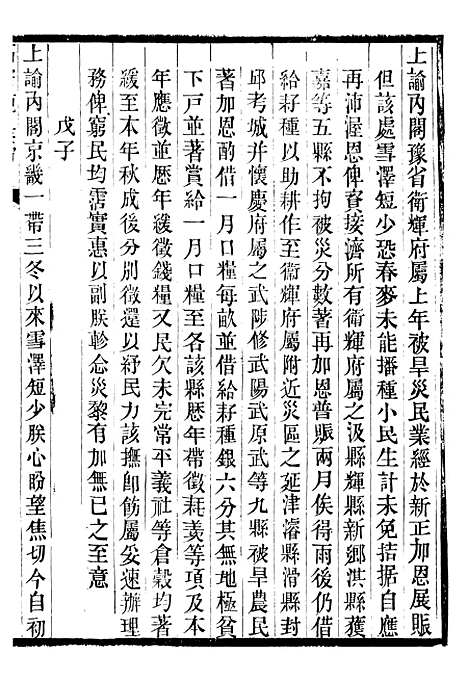 上諭内閣豫省衛輝府屬上年被旱災民業經於新正加恩展賑
但該處雪澤短少恐春麥未能播種小民生計未免拮据自應
再沛渥恩俾資接濟所有衛輝府屬之汲縣輝縣新鄉淇縣獲
嘉等五縣不拘被災分數著再加恩普賑兩月俟得雨後仍借
給耔種以助耕作至衞輝府屬附近災區之延津濬縣滑縣封
邱考城并懷慶府屬之武陟修武陽武原武等九縣被旱農民
著加恩酌借一月口糧每畝並借給耔種銀六分其無地極貧
下戸並著賞給一月口糧至各該縣歴年帶徵耗羨等項及本
年應徵並歴年緩徵錢糧又民欠未完常平義社等倉穀均著
緩至本年秋成後分別徵還以紓民力該撫卽飭屬妥速辦理
務俾窮民均霑實惠以副朕軫念災黎有加無已之至意
戊子
上諭内閣京畿一帶三冬以來雪澤短少朕心盼望焦切今自初